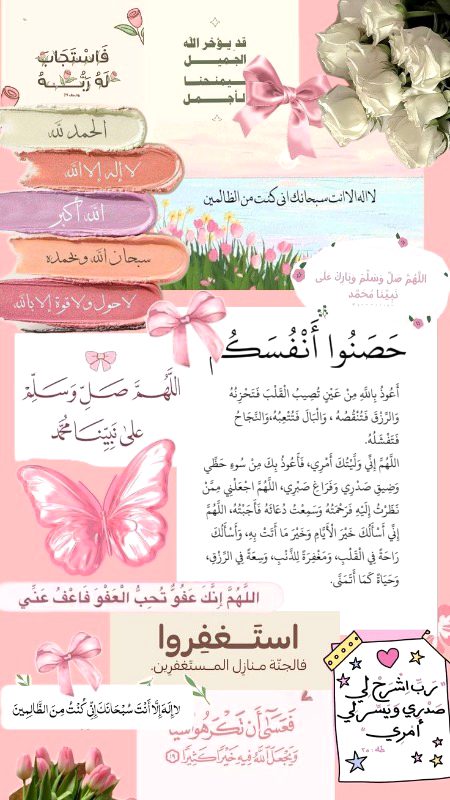 فَاسْتَجَابَ
لَهُ رَبُّهُ
قد يؤخر الله
الجميل
ليمنحنا
الأجمل
الحمد لله
لا إله إلا الله
الله أكبر
سبحان الله وبحمده
لا حول ولا قوة إلا بالله
لا اله الا انت سبحانك اني كنت من الظالمين
اللَّهُمَّ صلِّ وَسَلِّمْ وَبَارِك على
نَبِيِّنَا مُحَمَّد
حَصَنُوا أَنْفُسَكُم
أَعُوذُ بِاللَّهِ مِنْ عَيْنٍ تُصِيبُ الْقَلْبَ فَتَحْزِنُهُ
وَالرِّزْقَ فَتُنْقُصُهُ ، وَالْبَالَ فَتُتْعِبُهُ،وَالنَّجَاحُ
فَتَفْشَلُهُ.
اللَّهُمَّ إِنِّي وَلَّيْتُكَ أَمْرِي، فَأَعُوذُ بِكَ مِنْ سُوءِ حَظِّي
وَضِيقِ صَدْرِي وَفَرَاغِ صَبْرِي، اللَّهُمَّ اجْعَلْنِي مِمَّنْ
نَظَرْتُ إِلَيْهِ فَرَحْمَتُهُ وَسَمِعْتُ دُعَاتَهُ فَأَجَبْتُهُ، اللَّهُمَّ
إِنِّي أَسْأَلُكَ خَيْرَ الْأَيَّامِ وَخَيْرَ مَا أَتَتْ بِهِ، وَأَسْأَلُكَ
رَاحَةً فِي الْقَلْبِ، وَمَغْفِرَةً لِلذَّنْبِ، وَسِعَةً فِي الرِّزْقِ،
وَحَيَاةً كَمَا أَتَمَنَّى.
اللَّهُمَّ صَلِّ وَسَلِّمْ
عَلَىٰ نَبِيِّنَا مُحَمَّدْ
اللَّهُمَّ إِنَّكَ عَفُوٌّ تُحِبُّ الْعَفْوَ فَاعْفُ عَنِّي
استَــغفِروا
فالجنّة منازِل المـستَغفرين.
رَبِّ اشْرَحْ لِي
صَدْرِي وَيَسِّرْ لِي
أَمْرِي
طه : ٢٥
لا إِلَهَ إِلَّا أَنْتَ سُبْحَانَكَ إِنِّي كُنْتُ مِنَ الظَّالِمِينَ
فَعَسَىٰ أَن تَكْرَهُوا شَيْئًا
وَيَجْعَلَ اللَّهُ فِيهِ خَيْرًا كَثِيرًا ﴿١٩﴾